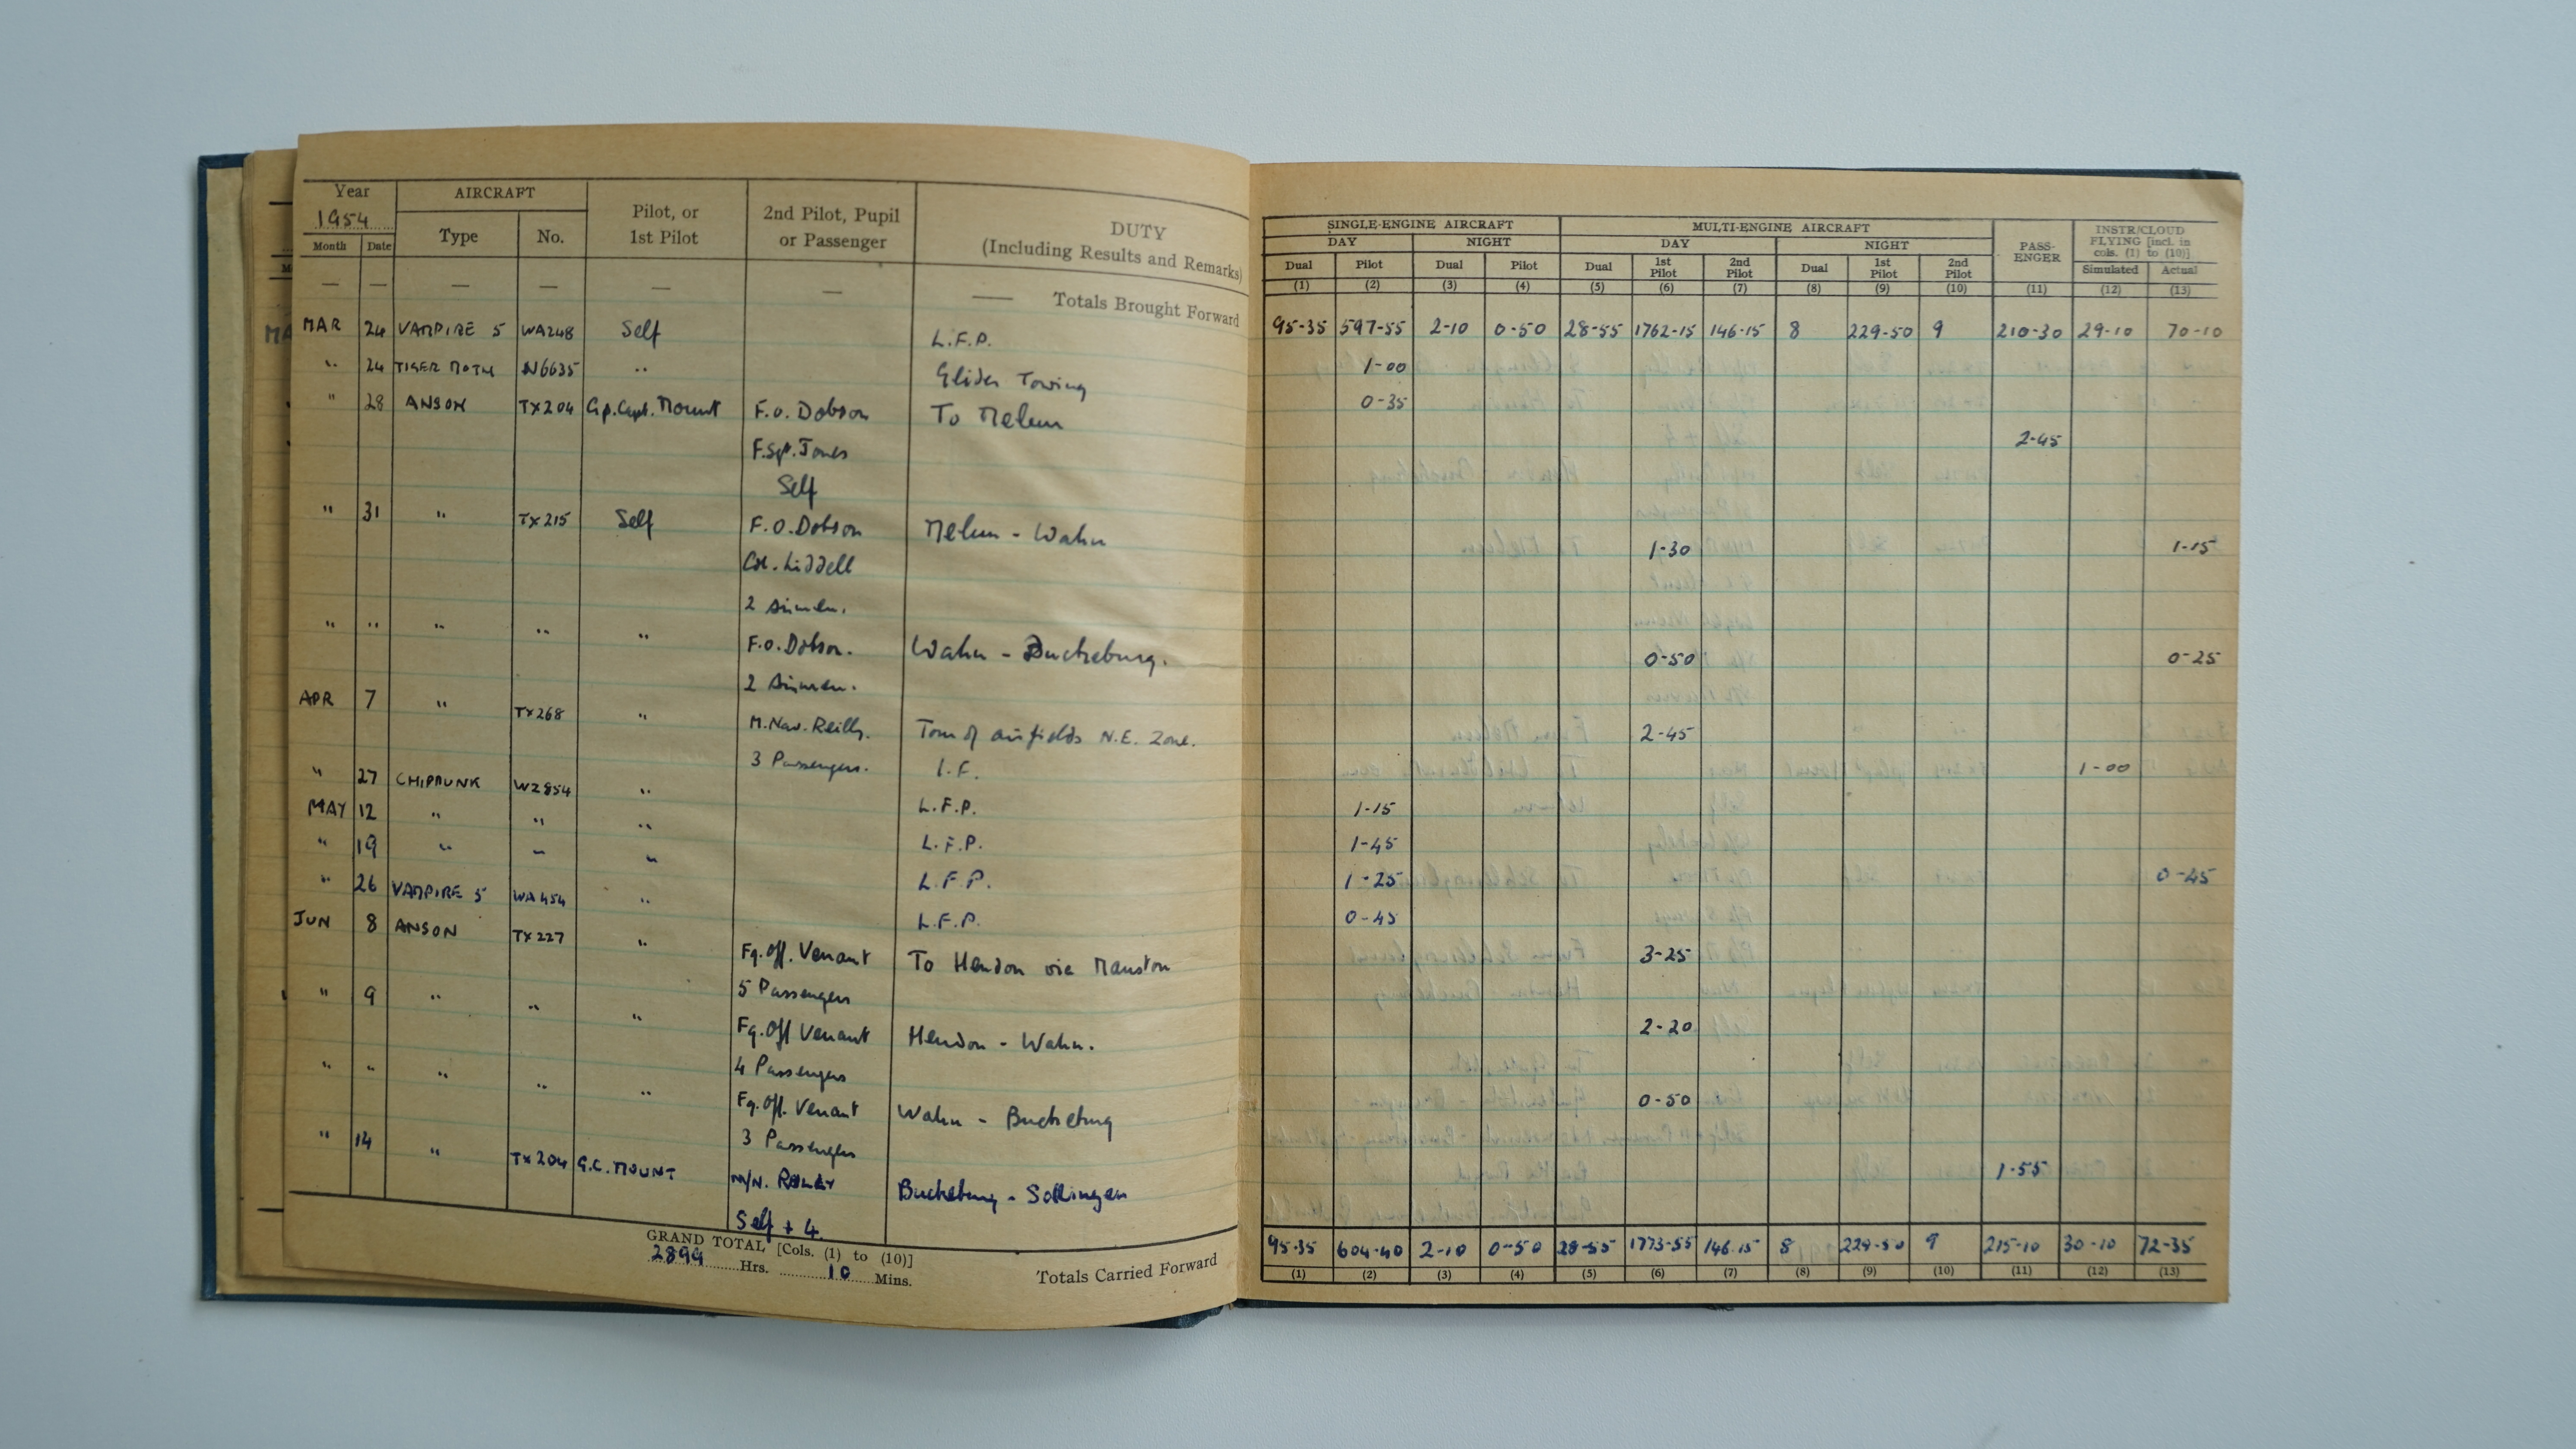 Year AIRCRAFT Pilot, or 1st Pilot 2nd Pilot, Pupil or Passenger DUTY (Including Results and Remarks)
1954
Month Date Type No.
— — — — — — — Totals Brought Forward
MAR 24 VAMPIRE 5 WA248 Self L.F.P.
" 24 TIGER MOTH N6635 " Glider Towing
" 28 ANSON TX204 Gp.Capt. Mount F.O. Dobson To Melun
F.Sgt. Jones
Self
" 31 " TX215 Self F.O. Dobson Melun - Wahn
Col. Liddell
2 Airmen.
" " " " " F.O. Dobson. Wahn - Buckeburg.
2 Airmen.
APR 7 " TX268 " M.Nav. Reilly. Tour of airfields N.E. Zone.
3 Passengers.
" 27 CHIPMUNK WZ854 " I.F.
MAY 12 " " " L.F.P.
" 19 " " " L.F.P.
" 26 VAMPIRE 5 WA454 " L.F.P.
JUN 8 ANSON TX227 " L.F.P.
Fg.Off. Venant To Hendon via Manston
5 Passengers
" 9 " " " Fg.Off Venant Hendon - Wahn.
4 Passengers
" " " " " Fg.Off. Venant Wahn - Buckeburg
3 Passengers
" 14 " TX204 G.C. MOUNT M/N. Buckeburg - Sollingen
Self + 4.
GRAND TOTAL [Cols. (1) to (10)]
2899 Hrs. 10 Mins.
Totals Carried Forward
SINGLE-ENGINE AIRCRAFT MULTI-ENGINE AIRCRAFT PASS-ENGER INSTR/CLOUD FLYING [incl. in cols. (1) to (10)]
DAY NIGHT DAY NIGHT
Dual Pilot Dual Pilot Dual 1st Pilot 2nd Pilot Dual 1st Pilot 2nd Pilot Simulated Actual
(1) (2) (3) (4) (5) (6) (7) (8) (9) (10) (11) (12) (13)
95-35 597-55 2-10 0-50 28-55 1762-15 146-15 8 229-50 9 210-30 29-10 70-10
1-00
0-35
2-45
1-30 1-15
0-50 0-25
2-45
1-00
1-15
1-45
1-25 0-45
0-45
3-25
2-20
0-50
1-55
95-35 604-40 2-10 0-50 28-55 1773-55 146-15 8 229-50 9 215-10 30-10 72-35
(1) (2) (3) (4) (5) (6) (7) (8) (9) (10) (11) (12) (13)